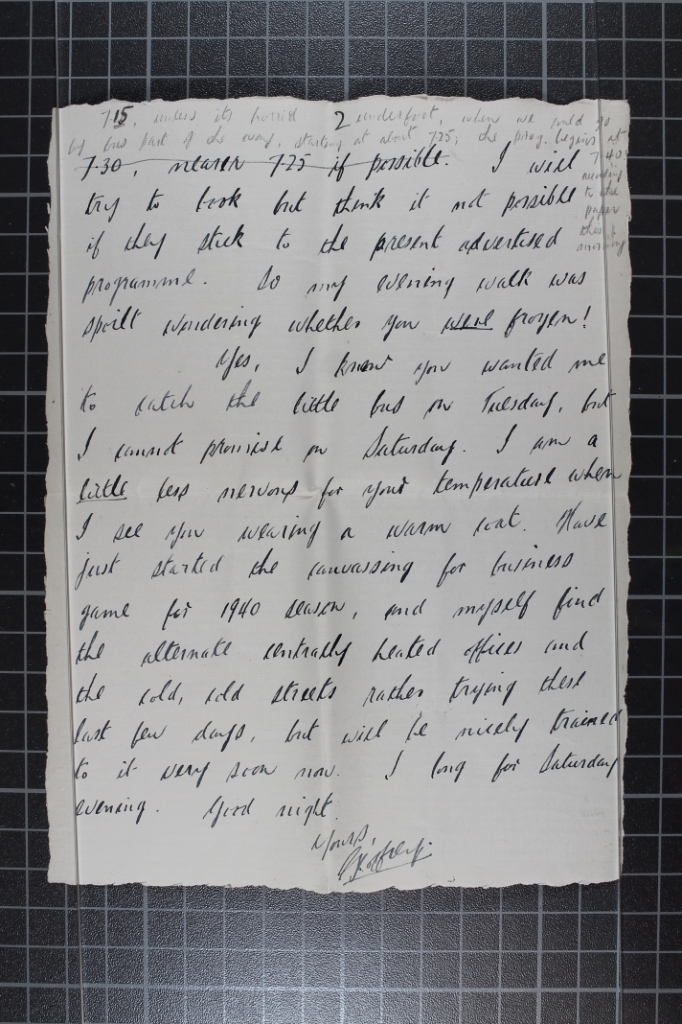 2
7.15, unless its horrid underfoot, when we could go
by bus part of the way, starting at about 7.25; the prog. begins at
7.40
according
to the
paper
this
morning
7.30, nearer 7.25 if possible. I will
try to book but think it not possible
if they stick to the present advertised
programme. So my evening walk was
spoilt wondering whether you were frozen!
Yes, I know you wanted me
to catch the little bus on Tuesday, but
I cannot promise on Saturday. I am a
little less nervous for your temperature when
I see you wearing a warm coat. Have
just started the canvassing for business
game for 1940 season, and myself find
the alternate centrally heated offices and
the cold, cold streets rather trying these
last few days, but will be nicely trained
to it very soon now. I long for Saturday
evening. Good night.
Yours,
Geoffrey.